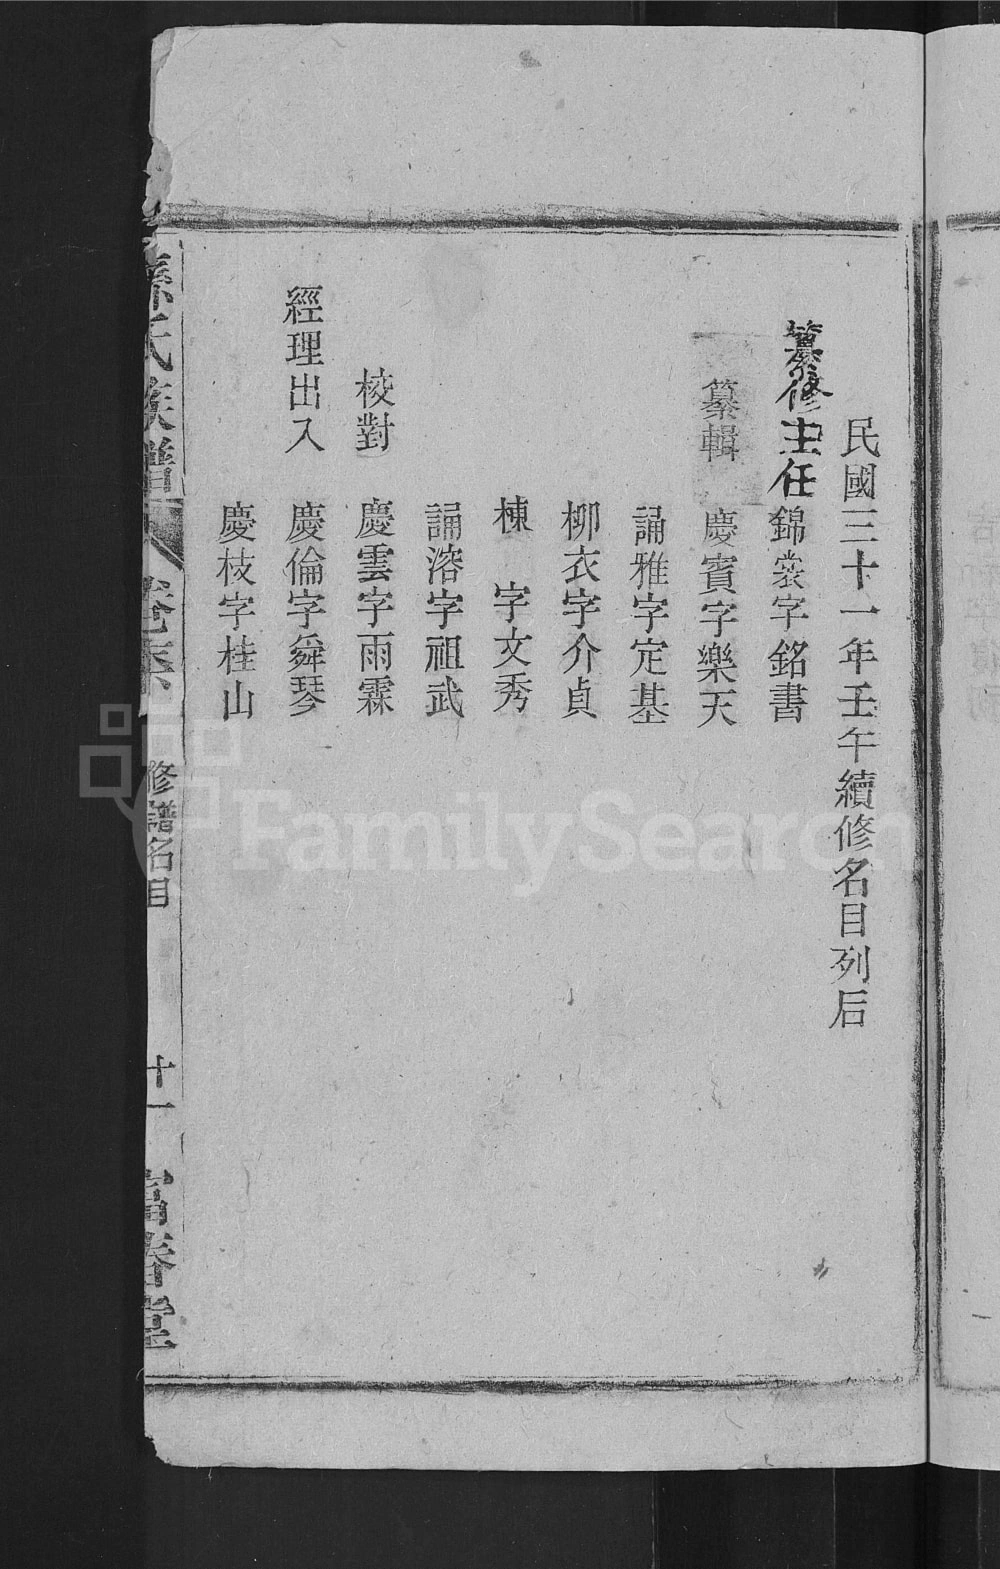 民國三十一年壬午續修名目列后
纂修主任 錦裳字銘書
纂輯 慶賓字樂天
誦雅字定基
柳衣字介貞
棟 字文秀
誦溶字祖武
校對 慶雲字雨霖
經理出入 慶倫字舜琴
慶枝字桂山
孫氏族譜 卷 修譜名目 十一 富春堂
FamilySearch